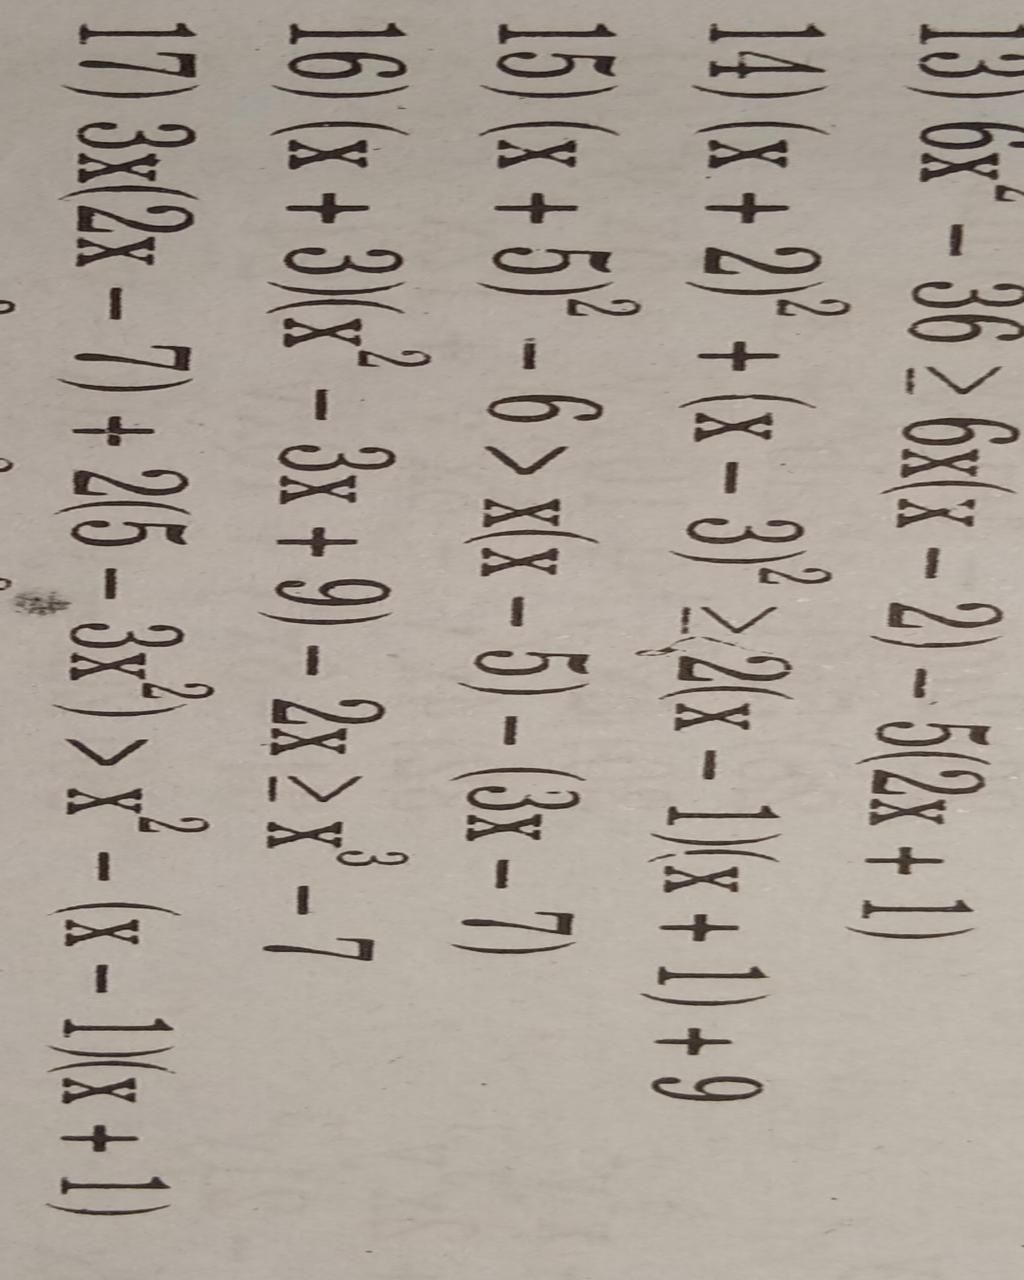 13) 6x² - 36 ≥ 6x(x - 2) - 5(2x + 1)
14) (x + 2)² + (x - 3)² ≥ 2(x - 1)(x + 1) + 9
15) (x + 5)² - 6 > x(x - 5) - (3x - 7)
16) (x + 3)(x² - 3x + 9) - 2x ≥ x³ - 7
17) 3x(2x - 7) + 2(5 - 3x²) > x² - (x - 1)(x + 1)